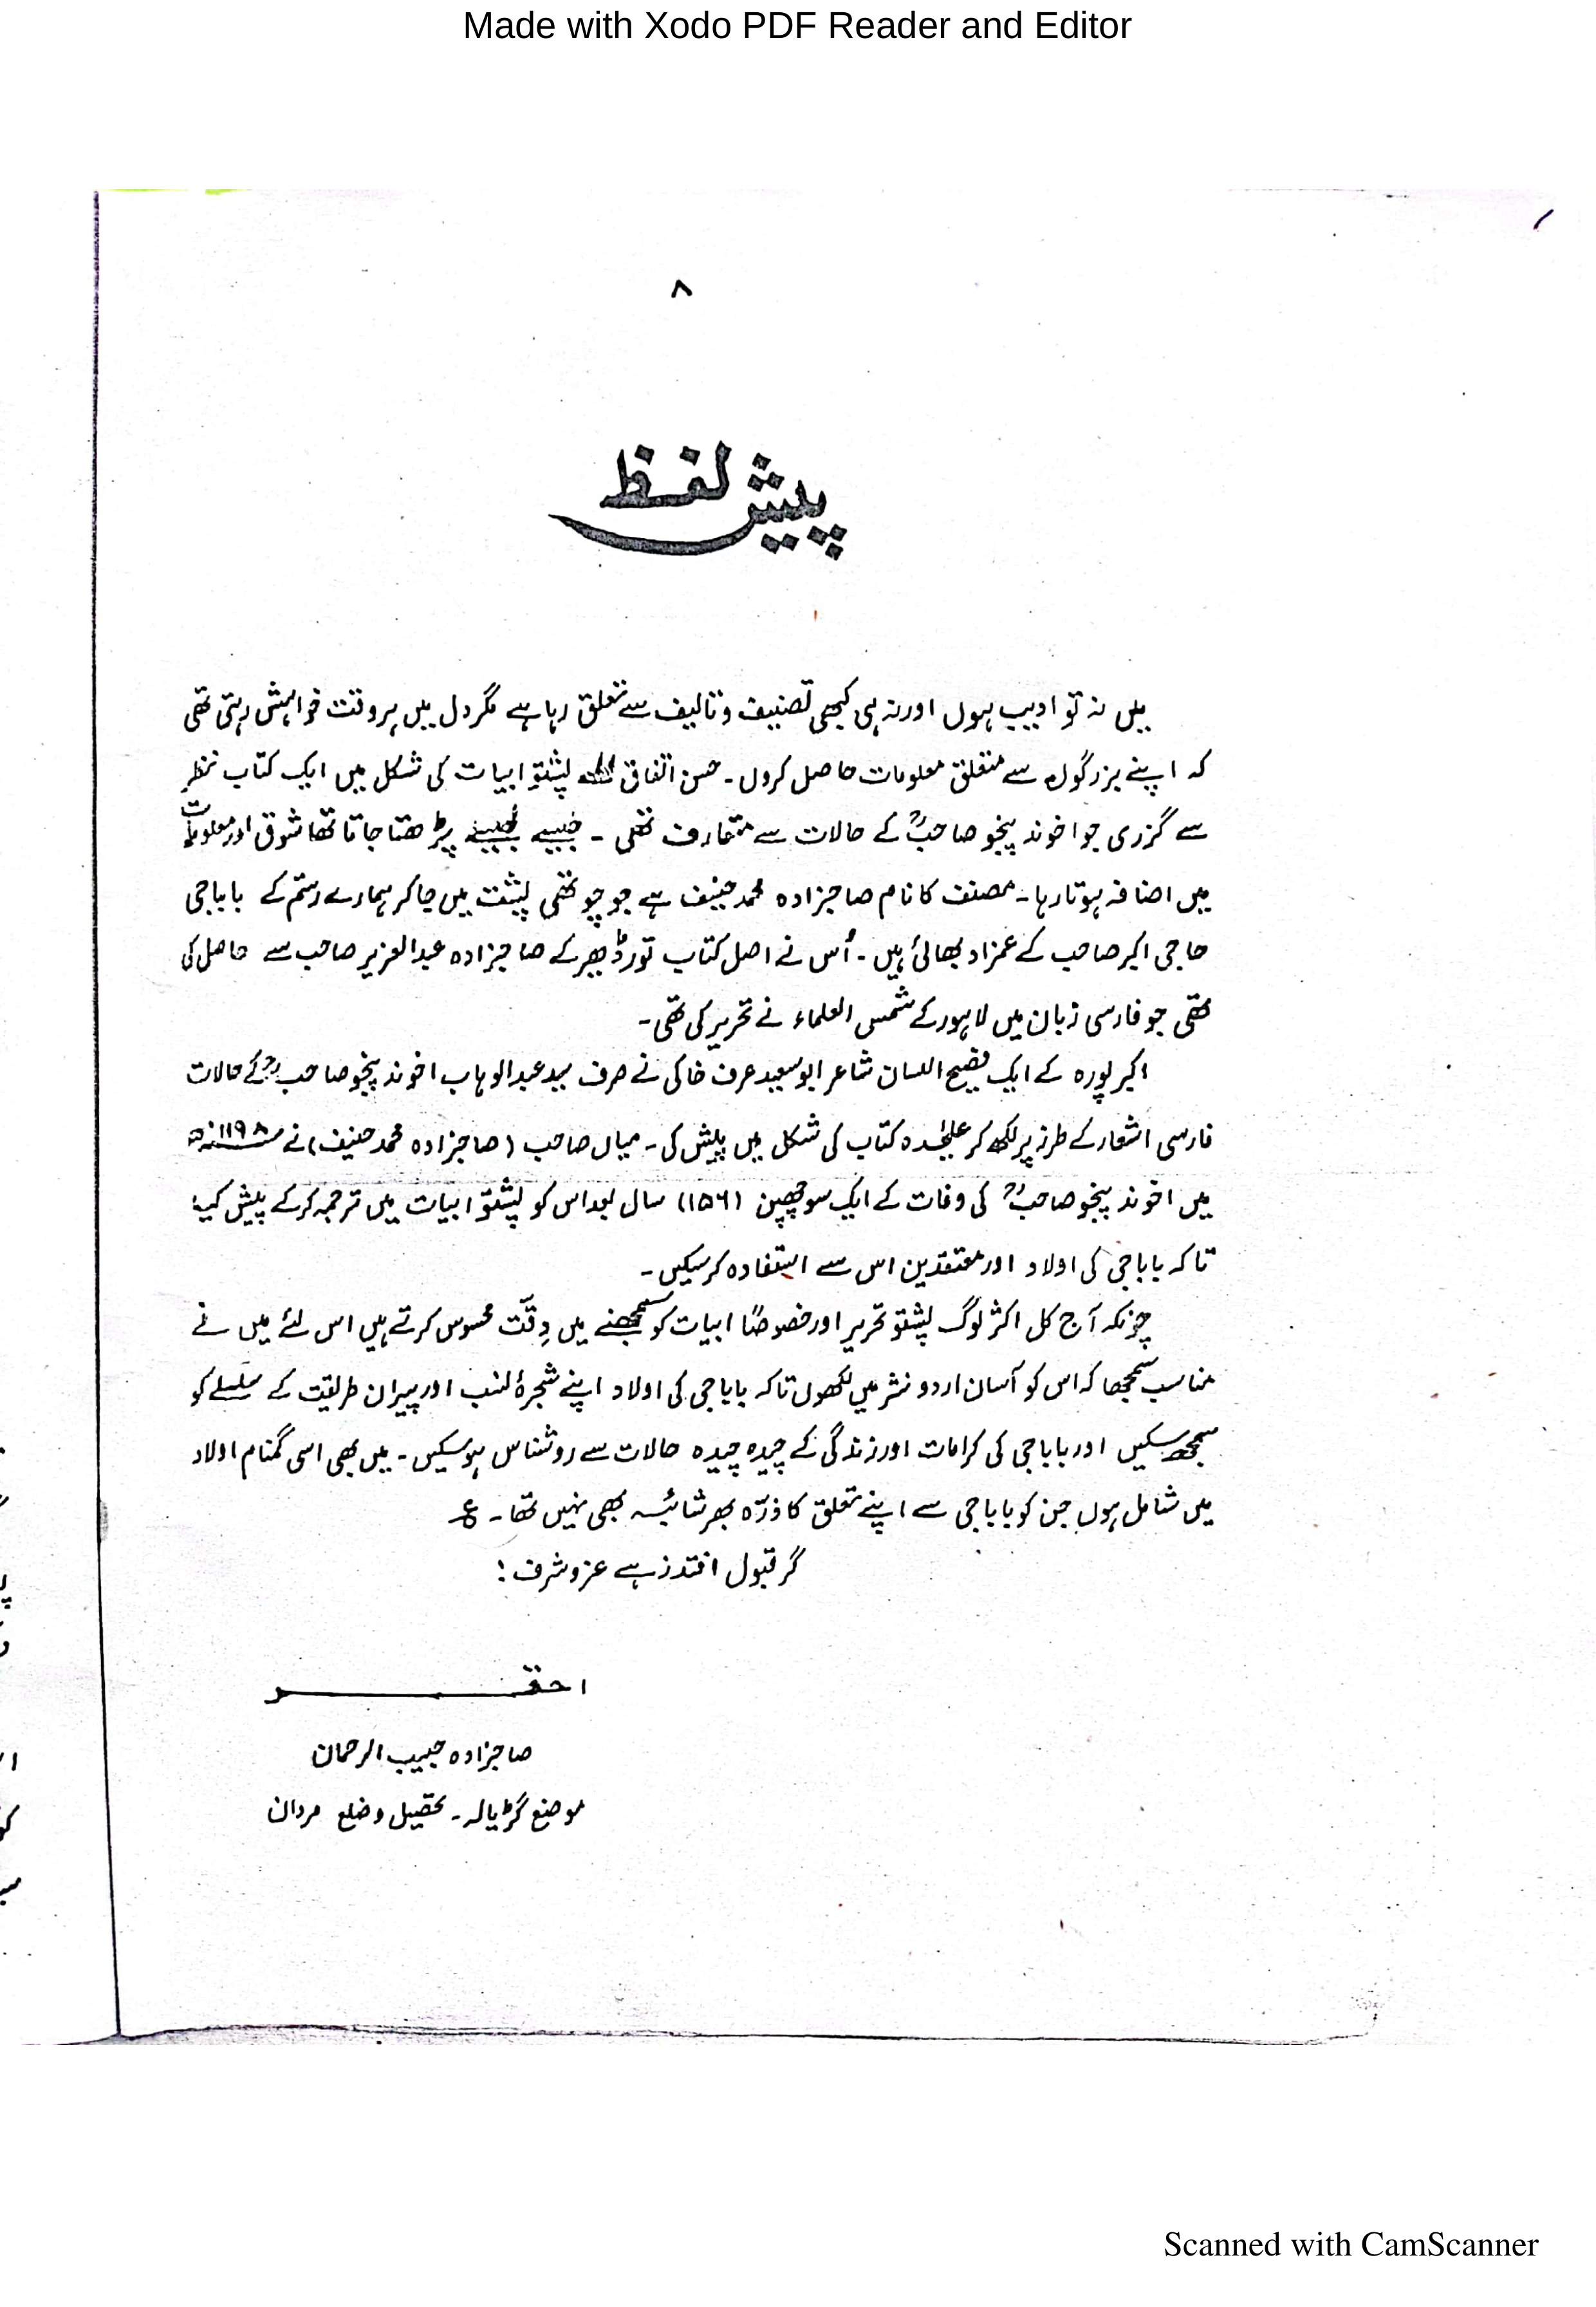 Made with Xodo PDF Reader and Editor
۸
پیش لفظ
میں نہ تو ادیب ہوں اور نہ ہی کبھی تصنیف و تالیف سے تعلق رہا ہے مگر دل میں ہر وقت خواہش رہتی تھی
کہ اپنے بزرگوں سے متعلق معلومات حاصل کروں ۔ حسن اتفاق پشتو ابیات کی شکل میں ایک کتاب نظر
سے گزری جو اخوند پنجو صاحبؒ کے حالات سے متعارف تھی ۔ جیسے جیسے پڑھتا جاتا تھا شوق اور معلومات
میں اضافہ ہوتا رہا ۔ مصنف کا نام صاحبزادہ محمد حنیف ہے جو چوتھی پشت میں جا کر ہمارے رستم کے باباجی
حاجی اکبر صاحب کے عمزاد بھائی ہیں ۔ اُس نے اصل کتاب تورڈھیر کے صاحبزادہ عبدالعزیز صاحب سے حاصل کی
تھی جو فارسی زبان میں لاہور کے شمس العلماء نے تحریر کی تھی ۔
اکبرپورہ کے ایک فصیح اللسان شاعر ابوسعید عرف خاکی نے صرف سید عبدالوہاب اخوند پنجو صاحبؒ کے حالات
فارسی اشعار کے طرز پر لکھ کر علیٰحدہ کتاب کی شکل میں پیش کی ۔ میاں صاحب (صاحبزادہ محمد حنیف) نے ۱۱۹۸ھ
میں اخوند پنجو صاحبؒ کی وفات کے ایک سو چھپن (۱۵۶) سال بعد اس کو پشتو ابیات میں ترجمہ کر کے پیش کیا
تاکہ باباجی کی اولاد اور معتقدین اس سے استفادہ کر سکیں ۔
چونکہ آج کل اکثر لوگ پشتو تحریر اور خصوصًا ابیات کو سمجھنے میں دِقّت محسوس کرتے ہیں اس لئے میں نے
مناسب سمجھا کہ اس کو آسان اردو نثر میں لکھوں تاکہ باباجی کی اولاد اپنے شجرۂ نسب اور پیران طریقت کے سلسلے کو
سمجھ سکیں اور باباجی کی کرامات اور زندگی کے چیدہ چیدہ حالات سے روشناس ہو سکیں ۔ میں بھی اسی گمنام اولاد
میں شامل ہوں جن کو باباجی سے اپنے تعلق کا ذرّہ بھر شائبہ بھی نہیں تھا ۔ ع
گر قبول افتد زہے عز و شرف :
احقر
صاحبزادہ حبیب الرحمان
موضع گڑیالہ ۔ تحصیل و ضلع مردان
Scanned with CamScanner